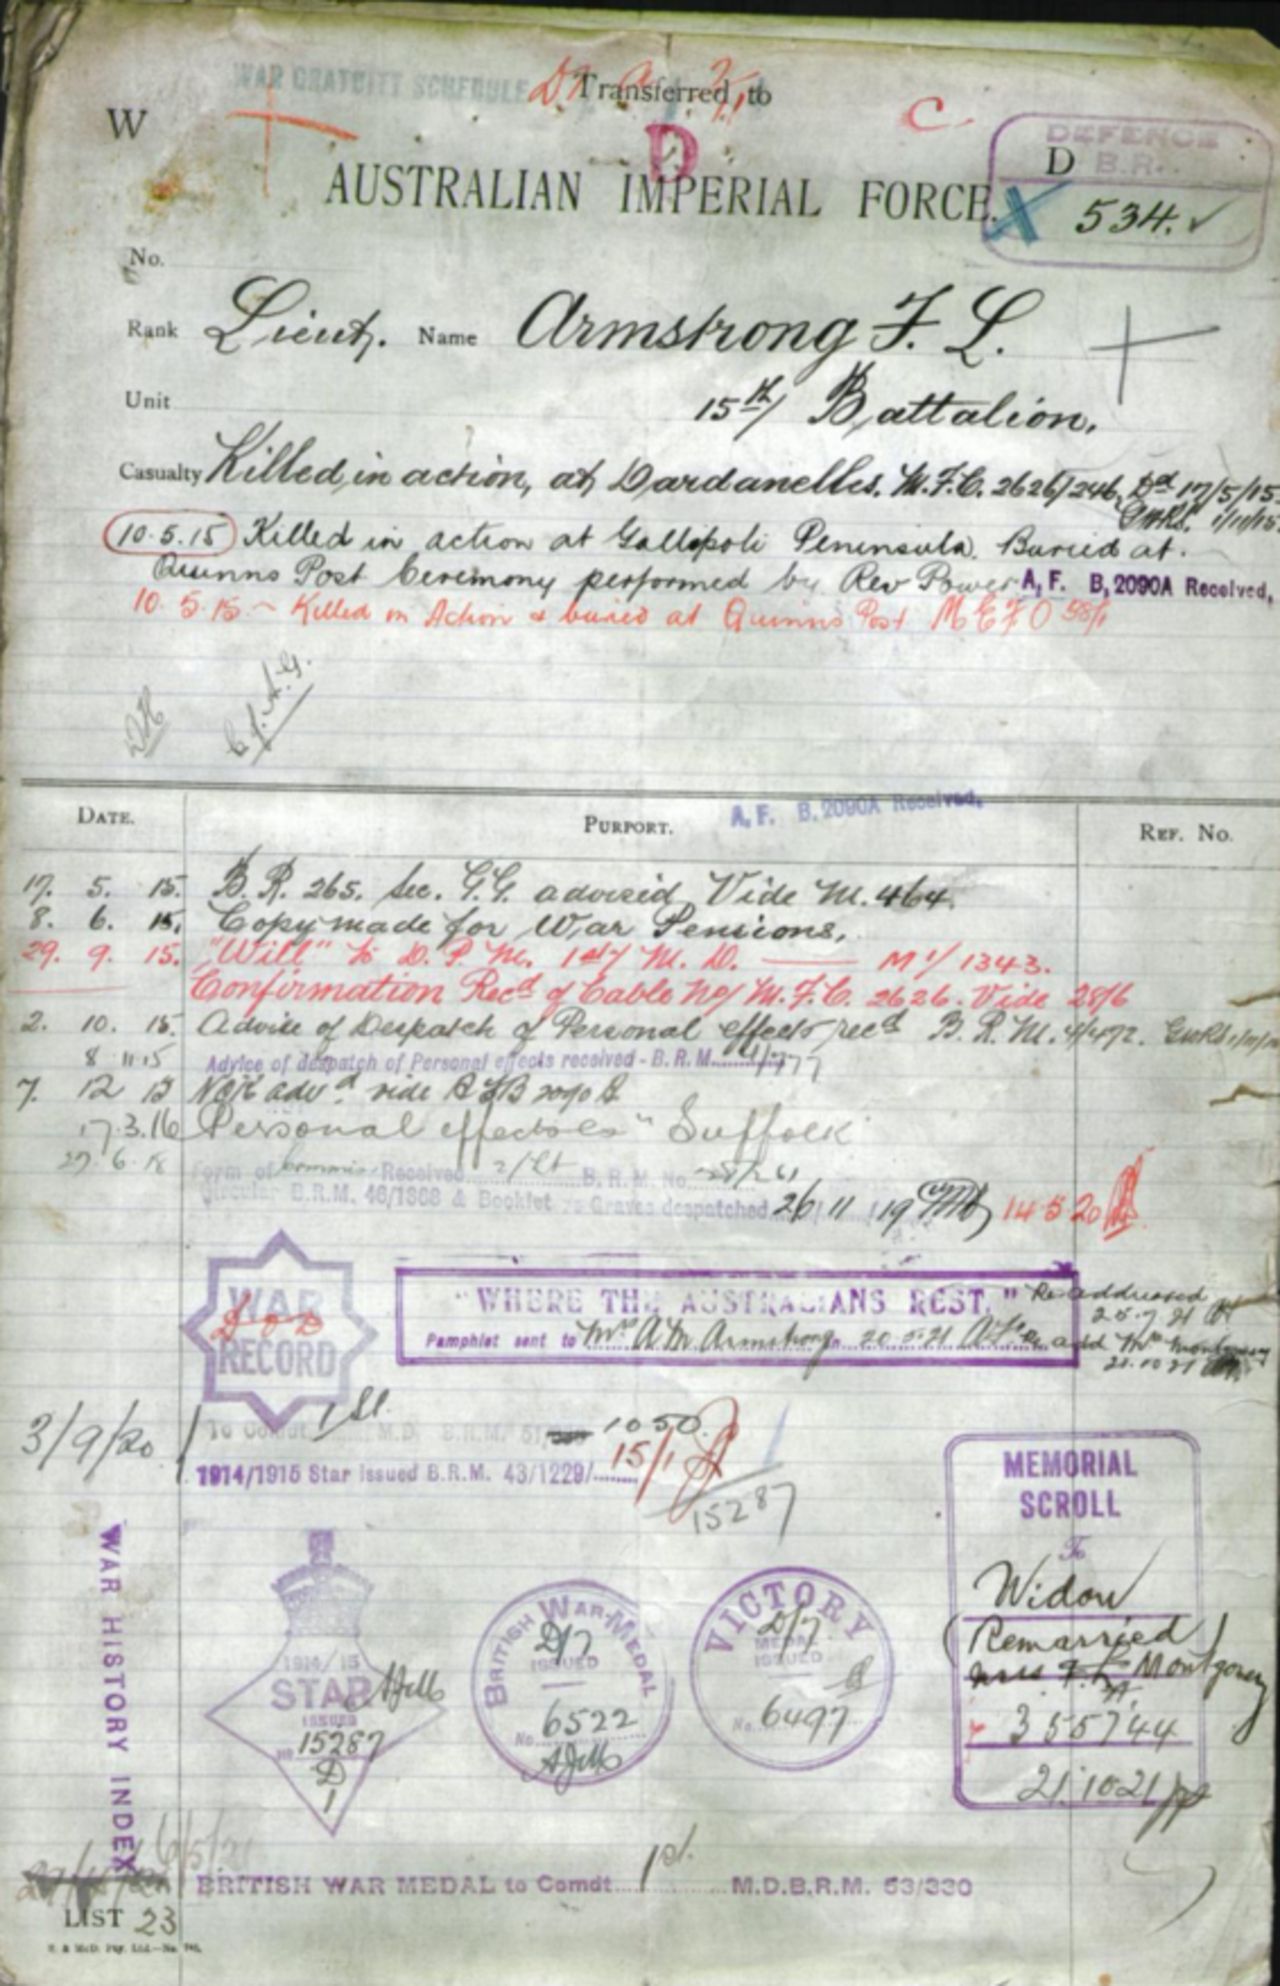 WAR GRATUITY SCHEDULE
Transferred to
W
C
D
DEFENCE
D B.R.
534. ✓
AUSTRALIAN IMPERIAL FORCE.
No.
Rank Lieut. Name Armstrong F. L.
Unit 15th/ Battalion.
Casualty Killed in action, at Dardanelles. M.F.C. 2626/246. Dd 17/5/15.
10.5.15 Killed in action at Gallipoli Peninsula. Buried at.
Quinns Post Ceremony performed by Rev Power A. F. B. 2090A Received.
10.5.15 ~ Killed in Action & buried at Quinns Post M E F O
DATE. PURPORT. A. F. B. 2090A Received. REF. No.
17. 5. 15. B.R. 265. Sec. G.G. advised Vide M. 464.
8. 6. 15. Copy made for War Pensions.
29. 9. 15. "Will" to D. P. M. 1st/ M. D. — M1/1343.
Confirmation Recd of Cable No/ M.F.C. 2626. Vide 28/6
2. 10. 15. Advise of Despatch of Personal effects recd B. R. M. 4/472.
8 11 15 Advice of despatch of Personal effects received - B. R. M. 4/777
7. 12 15 NOK advd vide A F B 2090 A
17.3.16 Personal effects "Suffolk"
27.6.18 Form of Commis. Received 2/Lt B. R. M. No.
Circular B.R.M. 46/1868 & Booklet re Graves despatched 26 11 19 14 5 20
WAR
RECORD
"WHERE THE AUSTRALIANS REST." Re addressed
25.7.21
Pamphlet sent to Mrs A M Armstrong on 20.5.21 Re add Mrs Montgomery
21.10.21
3/9/20 To Comdt. 1st M.D. B.R.M. 51/ 1050
1914/1915 Star issued B.R.M. 43/1229/ 15/1
15287
MEMORIAL
SCROLL
To
Widow
(Remarried)
Mrs Montgomery
355744
21.10.21
WAR HISTORY INDEX
1914/15
STAR
ISSUED
No 15287
D
1
BRITISH WAR-MEDAL
D/7
ISSUED
No. 6522
VICTORY
D/7
MEDAL
ISSUED
No. 6497
BRITISH WAR MEDAL to Comdt. 1st. M.D.B.R.M. 53/330
LIST 23